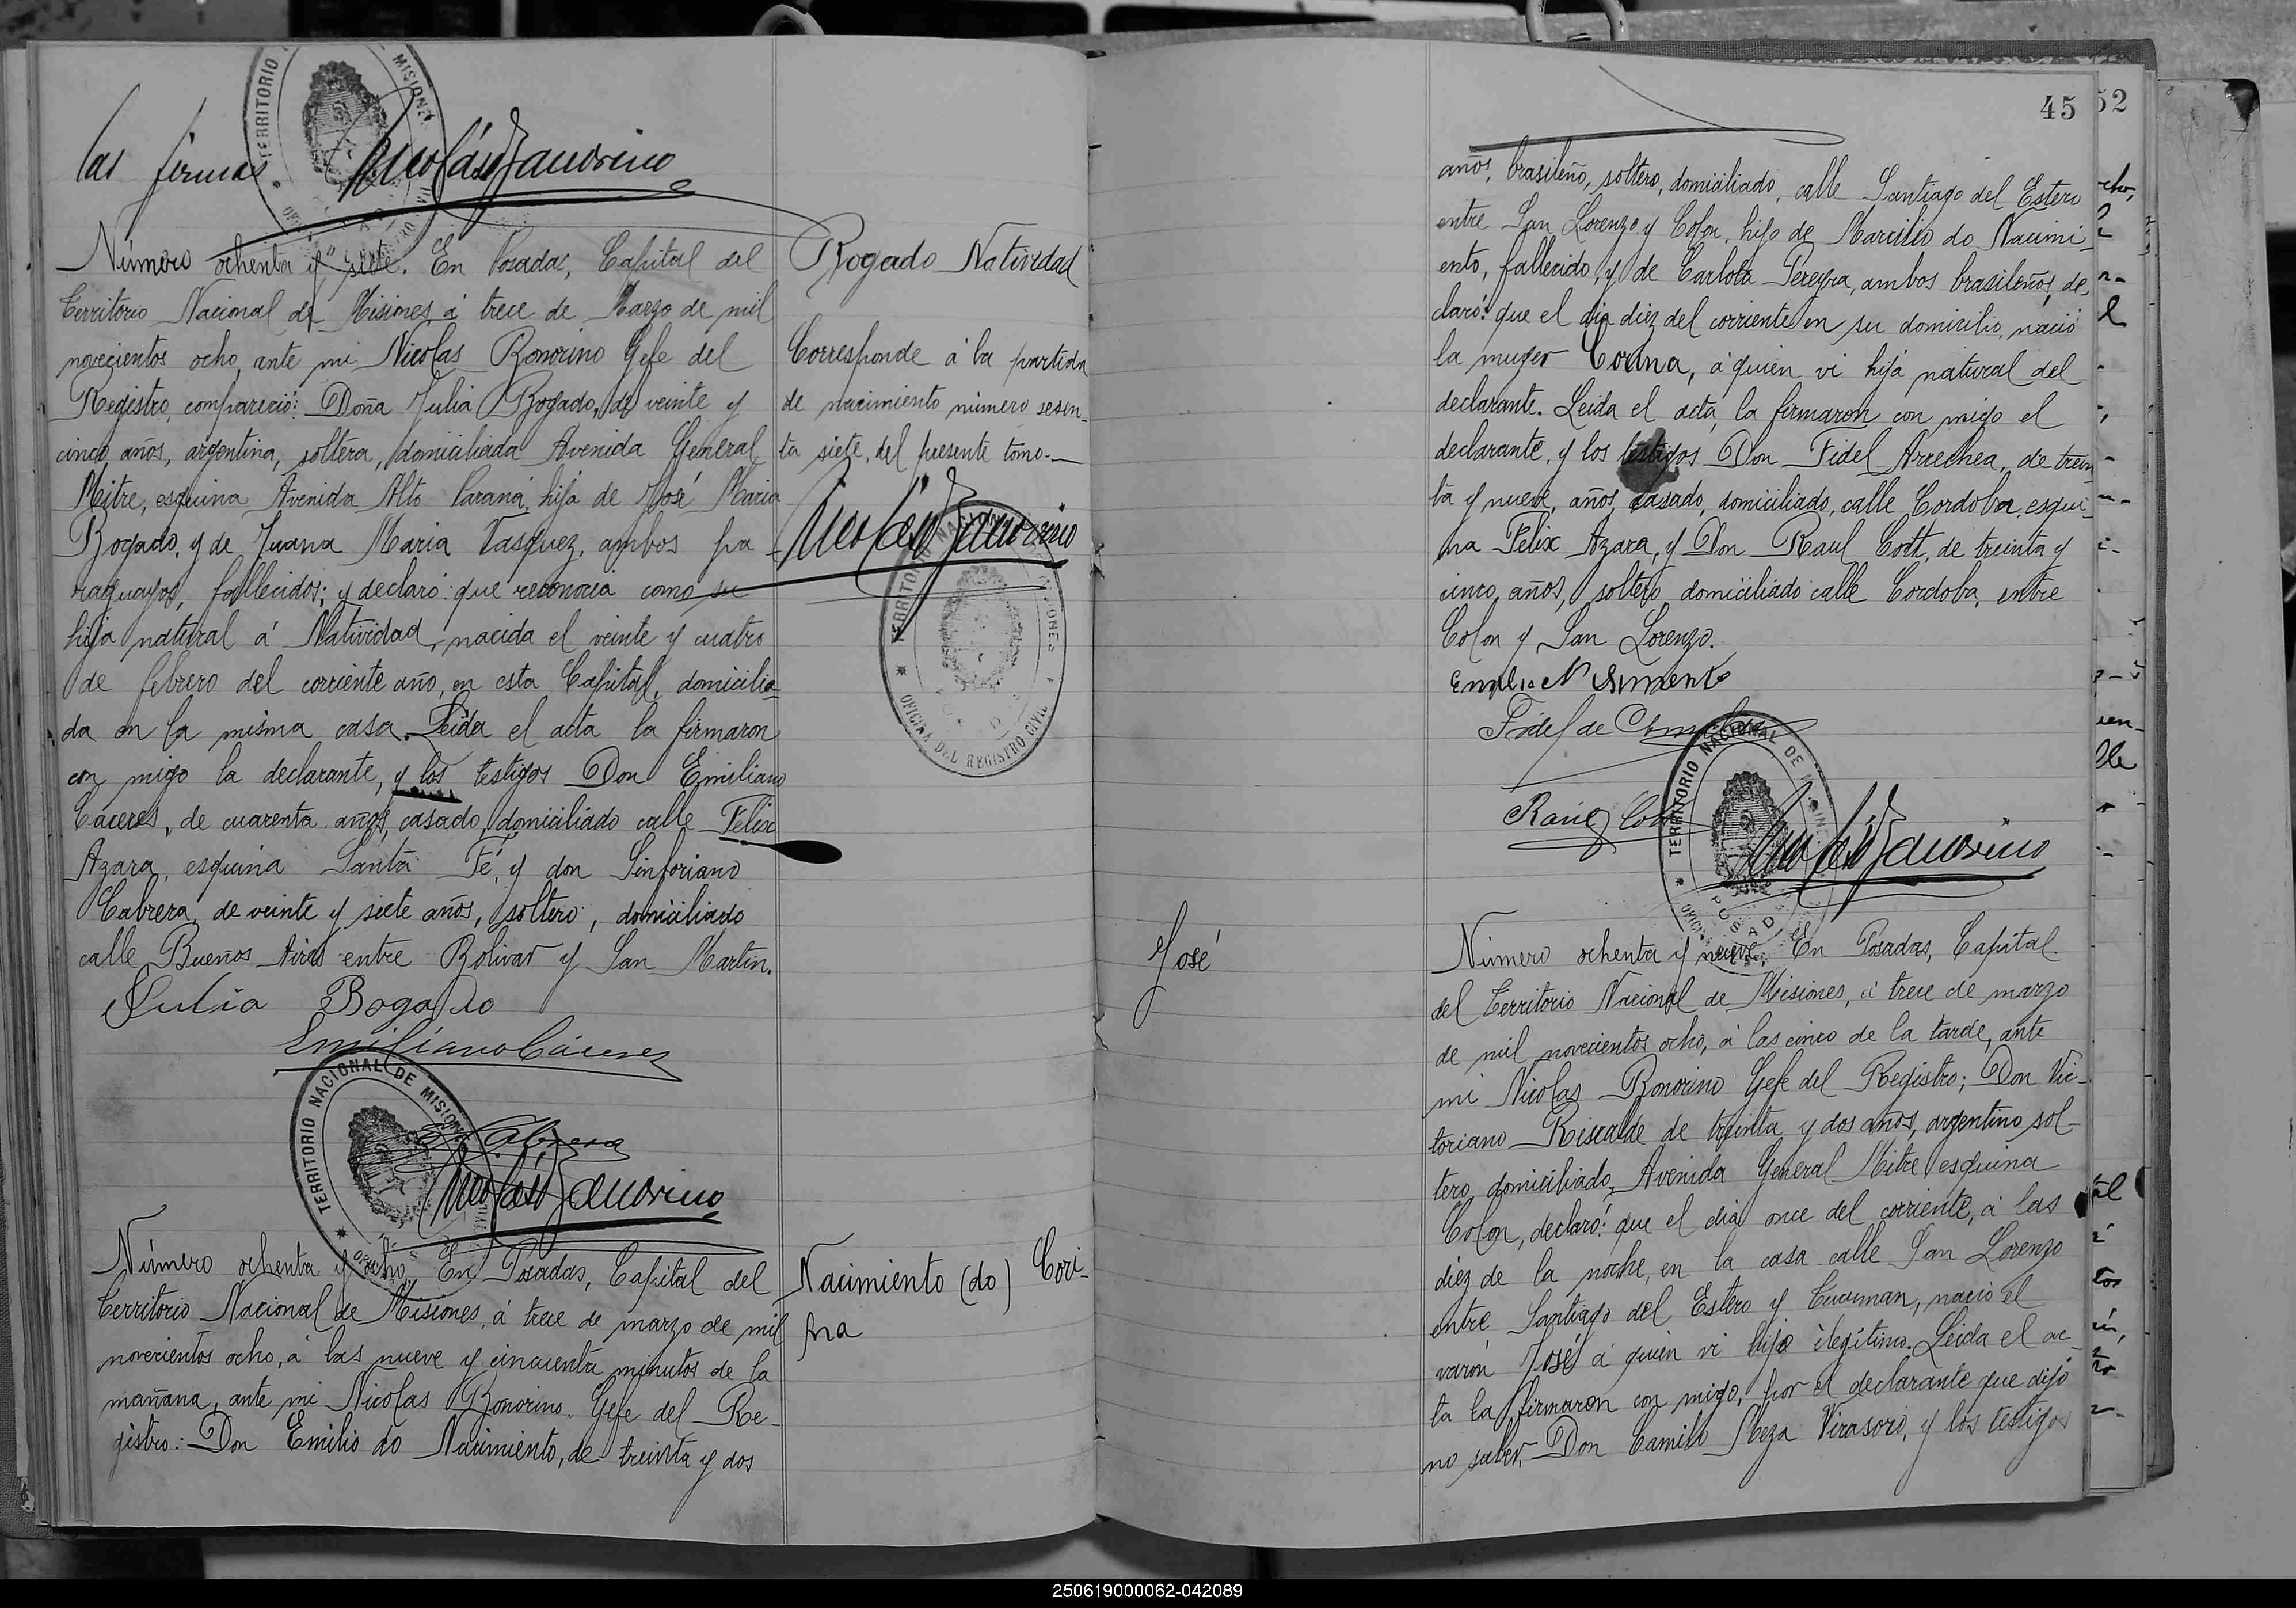 las firmas.
Nicolás Bonorino
Número ochenta y siete. En Posadas, Capital del
Territorio Nacional de Misiones, á trece de Marzo de mil
novecientos ocho, ante mi Nicolas Bonorino Gefe del
Registro, compareció: Doña Julia Bogado, de veinte y
cinco años, argentina, soltera, domiciliada Avenida General
Mitre, esquina Avenida Alto Paraná, hija de José Maria
Bogado, y de Juana Maria Vasquez, ambos pa
raguayos, fallecidos; y declaró: que reconocia como su
hija natural á Natividad, nacida el veinte y cuatro
de febrero del corriente año, en esta Capital, domicilia-
da en la misma casa. Leida el acta la firmaron
con migo la declarante, y los testigos Don Emiliano
Cáceres, de cuarenta años, casado, domiciliado calle Felix
Azara, esquina Santa Fé, y don Sinforiano
Cabrera, de veinte y siete años, soltero, domiciliado
calle Buenos Aires entre Bolivar y San Martin.
Julia Bogado
Emiliano Cáceres
S. Cabrera
Nicolás Bonorino
TERRITORIO NACIONAL DE MISIONES
Número ochenta y ocho. En Posadas, Capital del
Territorio Nacional de Misiones, á trece de marzo de mil
novecientos ocho, á las nueve y cincuenta minutos de la
mañana, ante mi Nicolas Bonorino. Gefe del Re-
gistro: Don Emilio do Nacimiento, de treinta y dos
Bogado Natividad
Corresponde á la partida
de nacimiento número sesen-
ta siete, del presente tomo.—
Nicolás Bonorino
TERRITORIO NACIONAL DE MISIONES
OFICINA DEL REGISTRO CIVIL
Nacimiento (do) Cori-
na
José
45
52
años, brasileño, soltero, domiciliado, calle Santiago del Estero
entre San Lorenzo y Colon, hijo de Marcilio do Nacimi-
ento, fallecido, y de Carlota Pereyra, ambos brasileños, de-
claró: que el dia diez del corriente en su domicilio, nació
la muger Corina, á quien vi hija natural del
declarante. Leida el acta, la firmaron con migo el
declarante, y los testigos Don Fidel Arrechea, de trein
ta y nueve, años, casado, domiciliado, calle Cordoba, esqui-
na Felix Azara, y Don Raul Cott, de treinta y
cinco, años, soltero, domiciliado calle Cordoba, entre
Colon y San Lorenzo.
Fidel de
Raúl
TERRITORIO NACIONAL DE
POSADAS
Nicolás Bonorino
Número ochenta y nueve. En Posadas, Capital.
del Territorio Nacional de Misiones, á trece de marzo
de mil novecientos ocho, á las cinco de la tarde, ante
mi Nicolas Bonorino Gefe del Registro; Don Vic-
toriano Riscalde de treinta y dos años, argentino sol-
tero, domiciliado, Avenida General Mitre esquina
Colon, declaró: que el dia once del corriente, á las
diez de la noche, en la casa calle San Lorenzo
entre Santiago del Estero y Tucuman, nació el
varon José á quien vi hijo ilegítimo. Leida el ac-
ta la firmaron con migo, por el declarante que dijó
no saber, Don Camilo Meza Virasoro, y los testigos
250619000062-042089